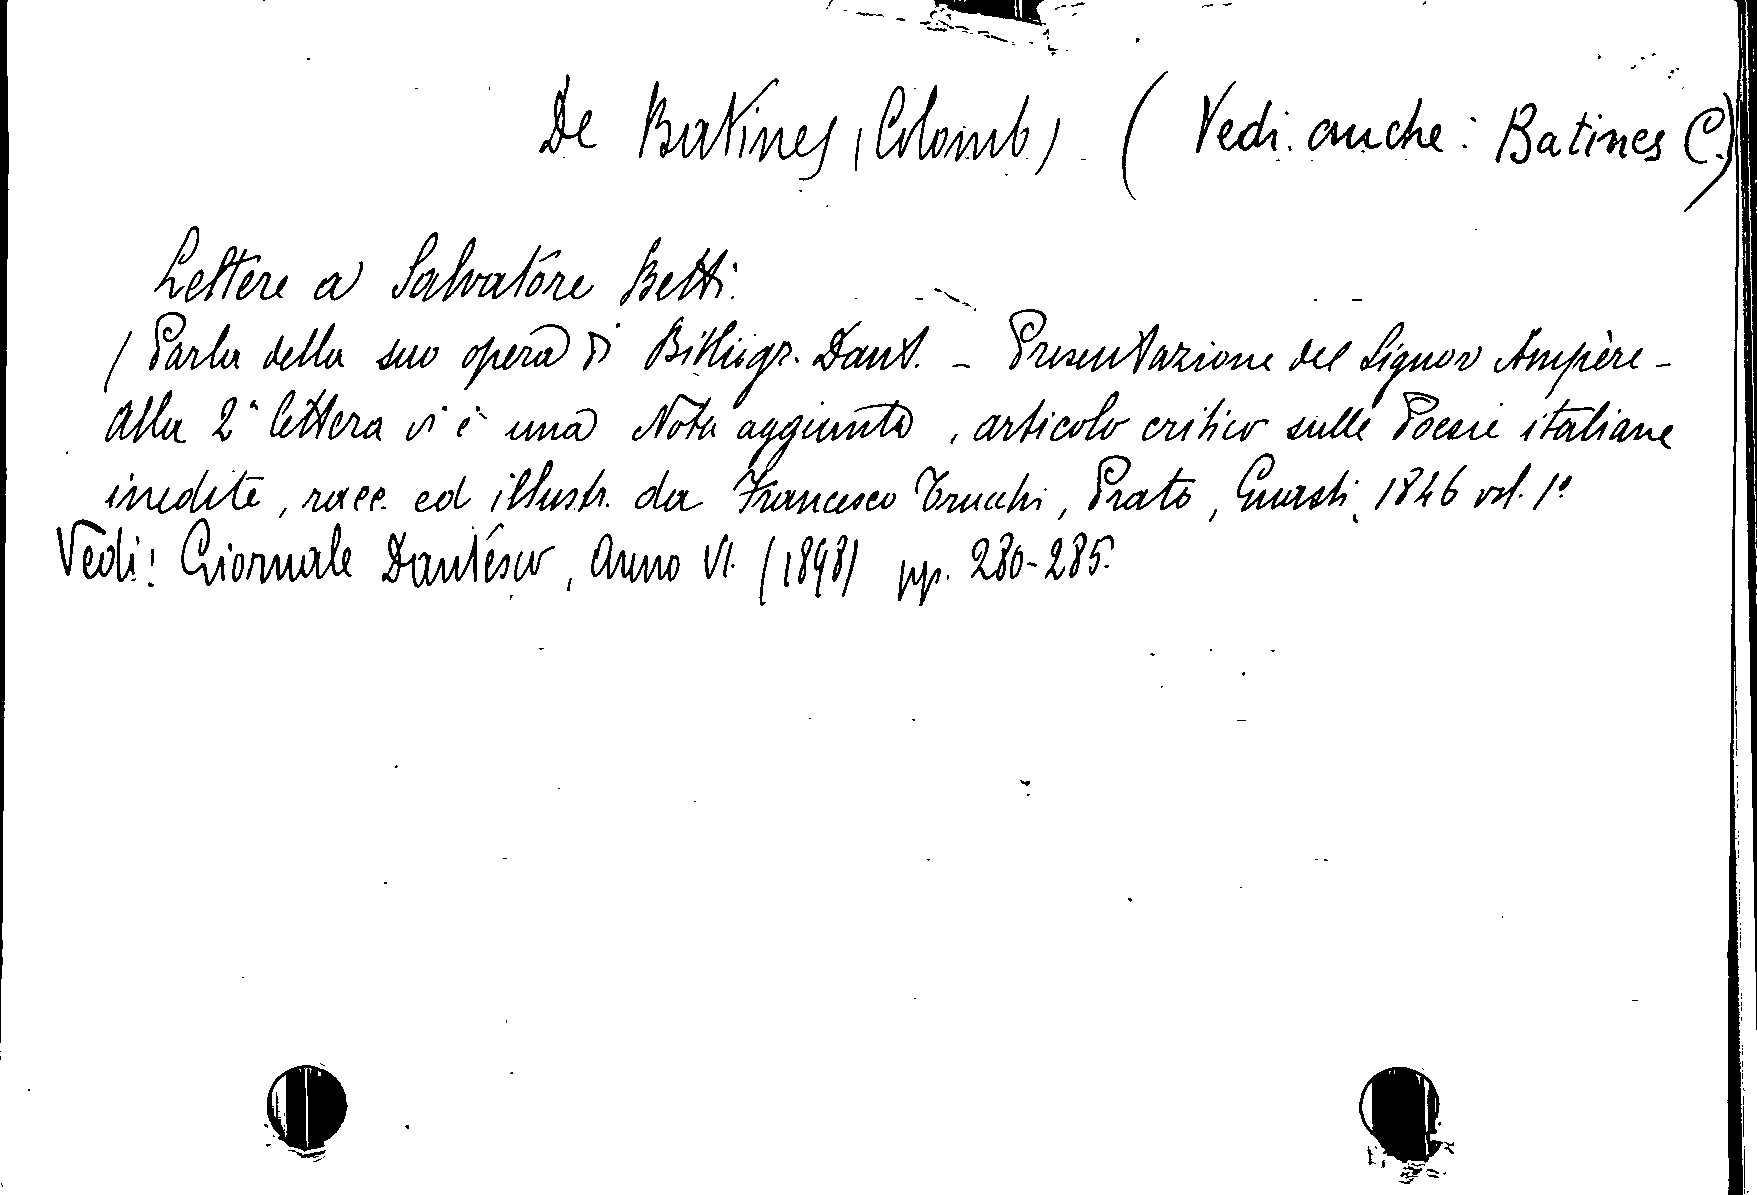 De Batines (Colomb) (Vedi anche: Batines C.)
Lettere a Salvatore Betti.
(Parla della sua opera di Bibliogr. Dant. - Presentazione del Signor Ampère -
Alla 2ª lettera vi è una Nota aggiunta, articolo critico sulle Poesie italiane
inedite, racc. ed illustr. da Francesco Trucchi, Prato, Guasti, 1846 vol. 1º
Vedi: Giornale Dantesco, Anno VI. (1898) pp. 280-285.